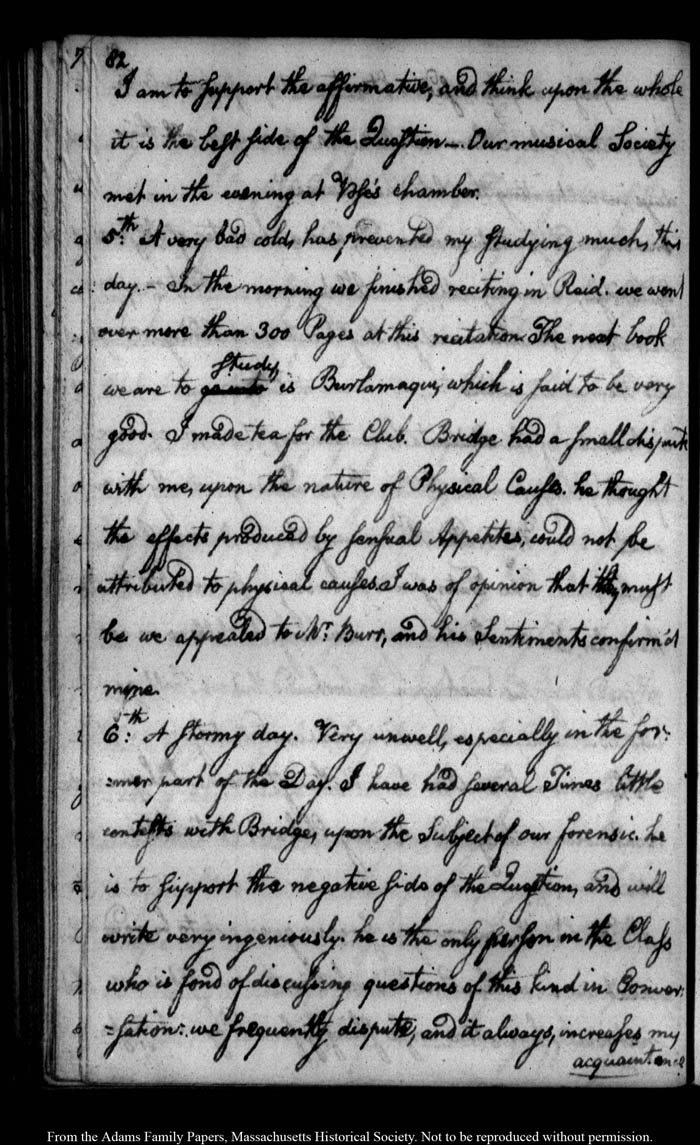 82
I am to support the affirmative, and think upon the whole
it is the best side of the Question—. Our musical Society
met in the evening at Vose's chamber.
5:th A very bad cold, has prevented my studying much, this
day. – In the morning we finished reciting in Reid. we went
over more than 300 Pages at this recitation. The next book
study,
we are to go into is Burlamaqui, which is said to be very
good. I made tea for the Club. Bridge had a small dispute
with me, upon the nature of Physical Causes. he thought
the effects produced by sensual Appetites, could not be
attributed to physical causes. I was of opinion that they must
be we appealed to Mr. Burr, and his Sentiments confirm'd
mine.
6:th A stormy day. Very unwell, especially in the for:
:mer part of the Day. I have had several Times little
contests with Bridge, upon the Subject of our forensic. he
is to support the negative side of the Question, and will
write very ingeniously. he is the only person in the Class
who is fond of discussing questions of this kind in Conver:
=sation: we frequently dispute, and it always, increases my
acquaintance
From the Adams Family Papers, Massachusetts Historical Society. Not to be reproduced without permission.